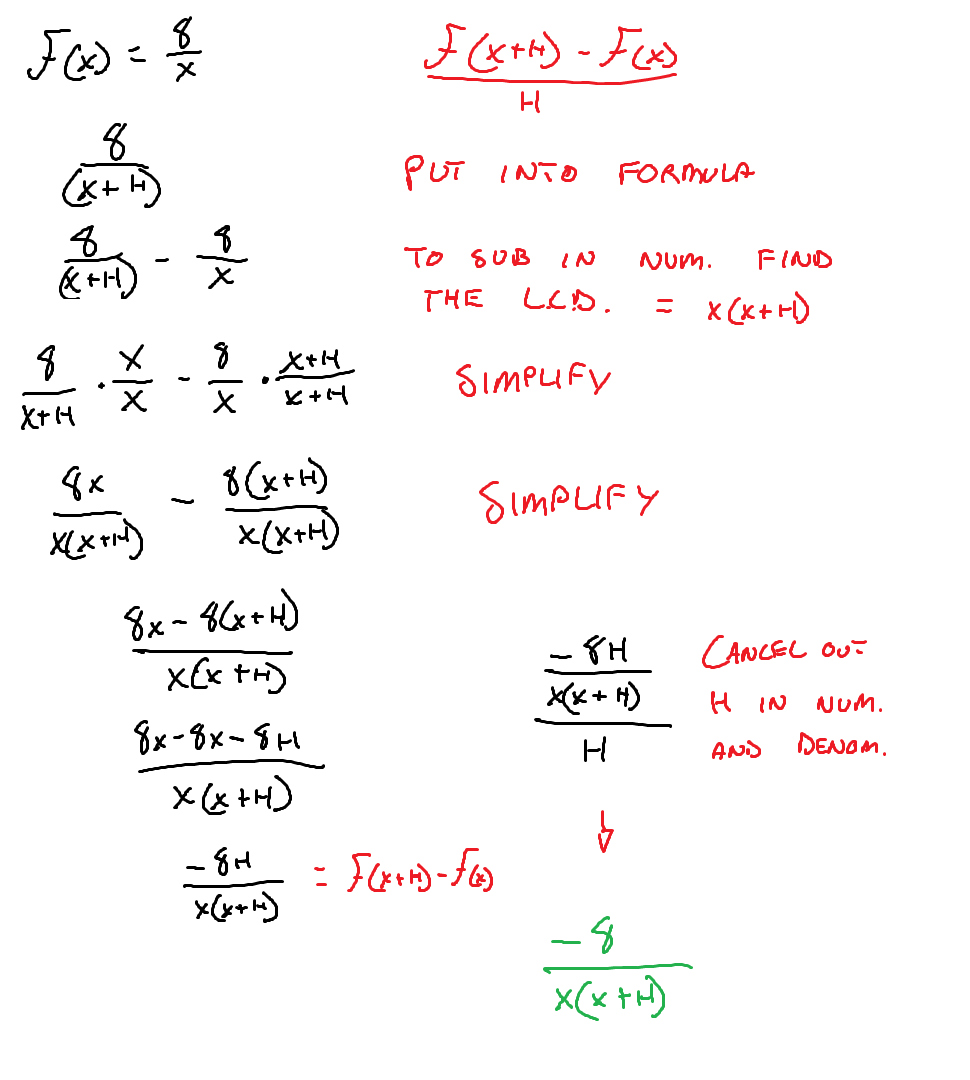 F(x) = 8/x
F(x+H) - F(x) / H
8/(x+H)
PUT INTO FORMULA
8/(x+H) - 8/x
TO SUB IN NUM. FIND
THE L.C.D. = x(x+H)
8/x+H · x/x - 8/x · x+H/x+H
SIMPLIFY
8x/x(x+H) - 8(x+H)/x(x+H)
SIMPLIFY
8x - 8(x+H)/x(x+H)
8x-8x-8H/x(x+H)
-8H/x(x+H) = F(x+H)-f(x)
-8H/x(x+H)/H
CANCEL OUT
H IN NUM.
AND DENOM.
-8/x(x+H)